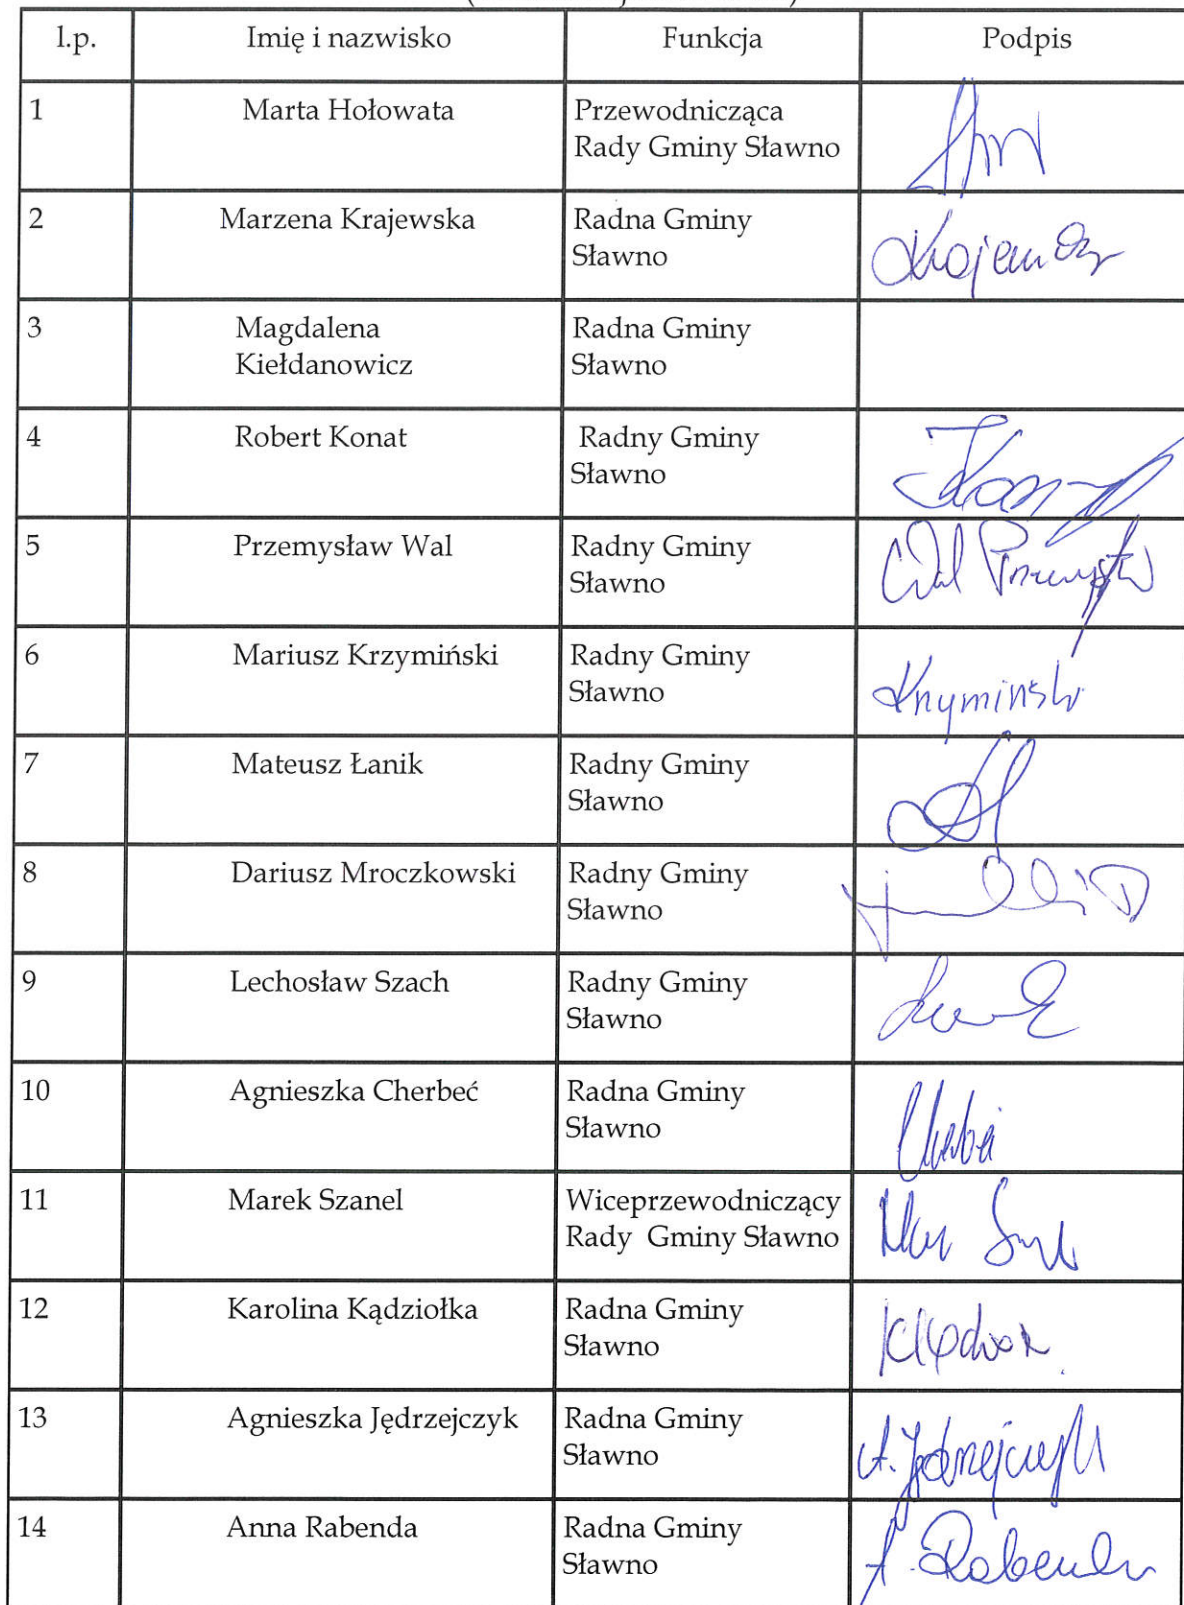 l.p. Imię i nazwisko Funkcja Podpis
1 Marta Hołowata Przewodnicząca
Rady Gminy Sławno
2 Marzena Krajewska Radna Gminy
Sławno
3 Magdalena Radna Gminy
Kiełdanowicz Sławno
4 Robert Konat Radny Gminy
Sławno
5 Przemysław Wal Radny Gminy
Sławno Wal Przemysław
6 Mariusz Krzymiński Radny Gminy
Sławno Krzymiński
7 Mateusz Łanik Radny Gminy
Sławno
8 Dariusz Mroczkowski Radny Gminy
Sławno
9 Lechosław Szach Radny Gminy
Sławno
10 Agnieszka Cherbeć Radna Gminy
Sławno
11 Marek Szanel Wiceprzewodniczący
Rady Gminy Sławno
12 Karolina Kądziołka Radna Gminy
Sławno
13 Agnieszka Jędrzejczyk Radna Gminy
Sławno A. Jędrzejczyk
14 Anna Rabenda Radna Gminy
Sławno A. Rabenda